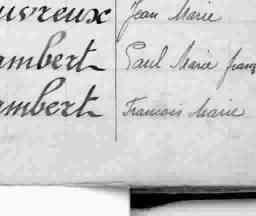 uvreux Jean Marie
ambert Paul Marie franç
ambert Francois Marie